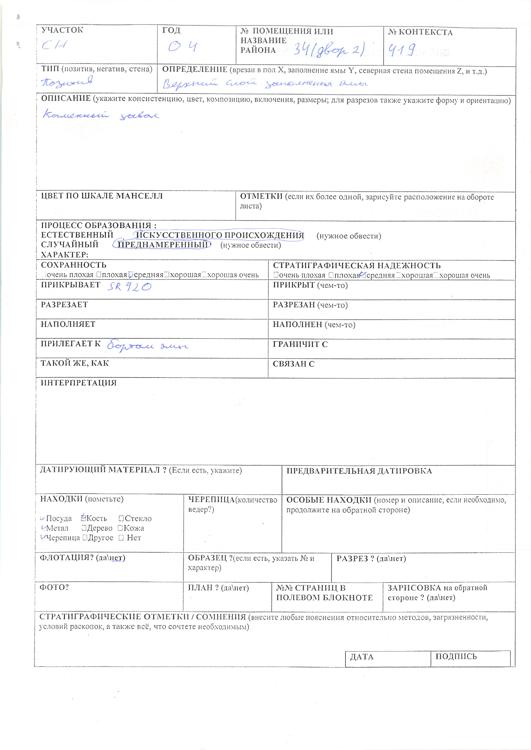 УЧАСТОК ГОД № ПОМЕЩЕНИЯ ИЛИ НАЗВАНИЕ РАЙОНА № КОНТЕКСТА
СН 04 34(двор 2) 419
ТИП (позитив, негатив, стена) ОПРЕДЕЛЕНИЕ (врезан в пол X, заполнение ямы Y, северная стена помещения Z, и т.д.)
Позитив Верхний слой заполнения ямы
ОПИСАНИЕ (укажите консистенцию, цвет, композицию, включения, размеры; для разрезов также укажите форму и ориентацию)
Каменный завал
ЦВЕТ ПО ШКАЛЕ МАНСЕЛЛ ОТМЕТКИ (если их более одной, зарисуйте расположение на обороте листа)
ПРОЦЕСС ОБРАЗОВАНИЯ :
ЕСТЕСТВЕННЫЙ ИСКУССТВЕННОГО ПРОИСХОЖДЕНИЯ (нужное обвести)
СЛУЧАЙНЫЙ ПРЕДНАМЕРЕННЫЙ (нужное обвести)
ХАРАКТЕР:
СОХРАННОСТЬ СТРАТИГРАФИЧЕСКАЯ НАДЕЖНОСТЬ
очень плохая плохая средняя хорошая хорошая очень очень плохая плохая средняя хорошая хорошая очень
ПРИКРЫВАЕТ SR 920 ПРИКРЫТ (чем-то)
РАЗРЕЗАЕТ РАЗРЕЗАН (чем-то)
НАПОЛНЯЕТ НАПОЛНЕН (чем-то)
ПРИЛЕГАЕТ К бортам ямы ГРАНИЧИТ С
ТАКОЙ ЖЕ, КАК СВЯЗАН С
ИНТЕРПРЕТАЦИЯ
ДАТИРУЮЩИЙ МАТЕРИАЛ ? (Если есть, укажите) ПРЕДВАРИТЕЛЬНАЯ ДАТИРОВКА
НАХОДКИ (пометьте) ЧЕРЕПИЦА(количество ведер?) ОСОБЫЕ НАХОДКИ (номер и описание, если необходимо, продолжите на обратной стороне)
Посуда Кость Стекло
Метал Дерево Кожа
Черепица Другое Нет
ФЛОТАЦИЯ? (да\нет) ОБРАЗЕЦ ?(если есть, указать № и характер) РАЗРЕЗ ? (да\нет)
ФОТО? ПЛАН ? (да\нет) №№ СТРАНИЦ В ПОЛЕВОМ БЛОКНОТЕ ЗАРИСОВКА на обратной стороне ? (да\нет)
СТРАТИГРАФИЧЕСКИЕ ОТМЕТКИ / СОМНЕНИЯ (внесите любые пояснения относительно методов, загрязненности,
условий раскопок, а также всё, что сочтете необходимым)
ДАТА ПОДПИСЬ